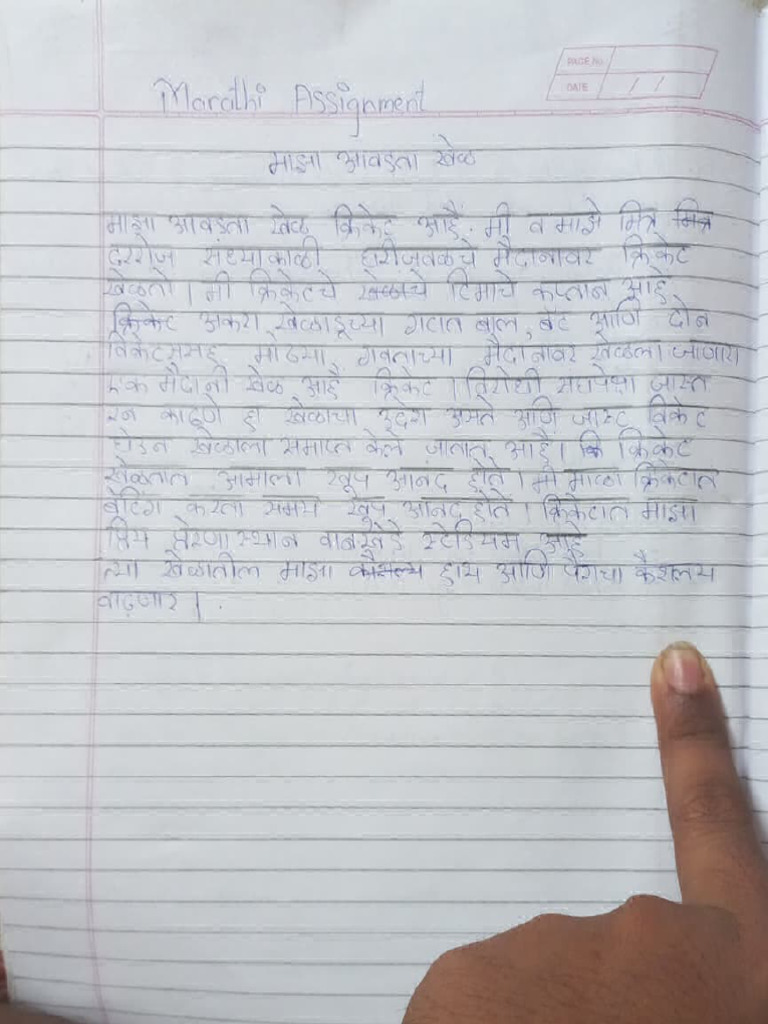 PAGE No.
DATE / /
Marathi Assignment
माझा आवडता खेळ
माझा आवडता खेळ क्रिकेट आहे. मी व माझे मित्र
दररोज संध्याकाळी घरीजवळचे मैदानावर क्रिकेट
खेळतो । मी क्रिकेटचे टिमाचे कप्तान आहे
क्रिकेट अकरा खेळाडूच्या गटात बॉल, बॅट आणि दोन
विकेटसमह मोठ्या गवताच्या मैदानावर खेळला जाणारा
एक मैदानी खेळ आहे क्रिकेट । विरोधी संघपेक्षा जास्त
रन काढणे हा खेळाचा उद्देश असते आणि जास्ट विकेट
घेउन खेळाला समाप्त केले जातात आहे। क्रिकेट
खेळतात आमाला खूप आनंद होते । मी माळा क्रिकेटात
बेटिंग करता समय खूप आनंद होते । क्रिकेटात माझा
प्रिय प्रेरणास्थान वानखेडे स्टेडियम आहे
त्या खेळातील माझा हाथ आणि पेराचा कैशलय
वाढणार ।